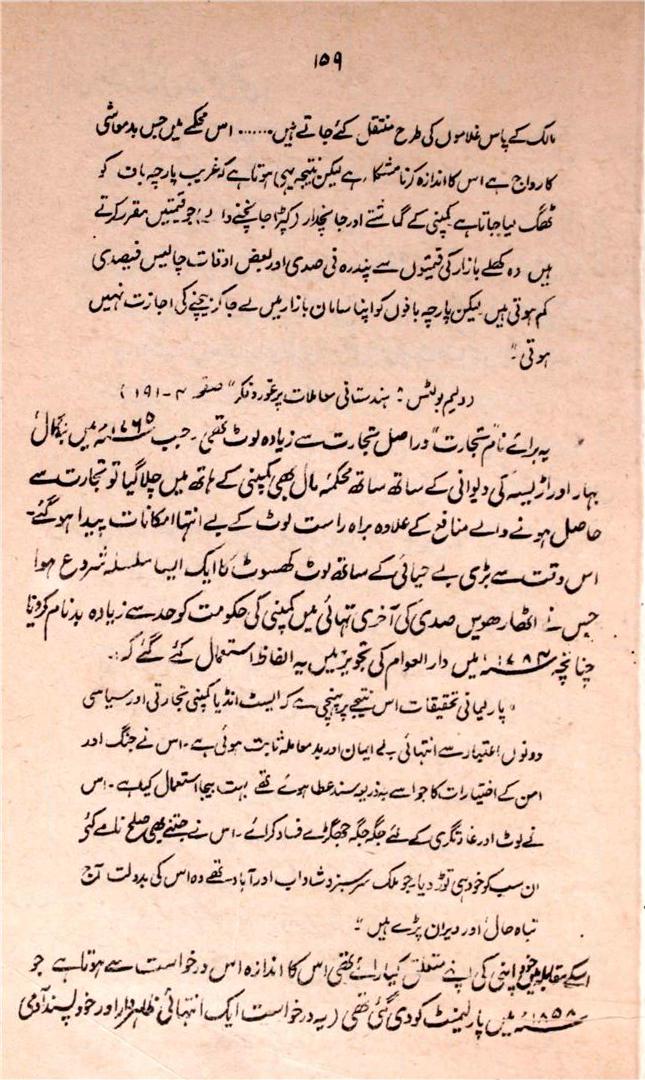 ۱۵۹
مالک کے پاس غلاموں کی طرح منتقل کئے جاتے ہیں ....... اس محکمے میں جس بدمعاشی
کا رواج ہے اس کا اندازہ کرنا مشکل ہے لیکن نتیجہ یہی ہوتا ہے کہ غریب پارچہ باف کو
ٹھگ لیا جاتا ہے کمپنی کے گماشتے اور جانچدار (کپڑا جانچنے والے) جو قیمتیں مقرر کرتے
ہیں وہ کھلے بازار کی قیمتوں سے پندرہ فی صدی اور بعض اوقات چالیس فیصدی
کم ہوتی ہیں لیکن پارچہ بافوں کو اپنا سامان بازار میں لے جا کر بیچنے کی اجازت نہیں
ہوتی"
(ولیم بولٹس: ہندستانی معاملات پر غور و فکر" صفحہ ۴-۱۹۱)
یہ برائے نام تجارت" دراصل تجارت سے زیادہ لوٹ تھی۔ جب ۱۷۶۵ء میں بنگال
بہار اور اڑیسہ کی دیوانی کے ساتھ ساتھ محکمۂ مال بھی کمپنی کے ہاتھ میں چلا گیا تو تجارت سے
حاصل ہونے والے منافع کے علاوہ براہ راست لوٹ کے بے انتہا امکانات پیدا ہو گئے۔
اس وقت سے بڑی بے حیائی کے ساتھ لوٹ کھسوٹ کا ایک ایسا سلسلہ شروع ہوا
جس نے اٹھارھویں صدی کی آخری تہائی میں کمپنی کی حکومت کو حد سے زیادہ بدنام کر دیا
چنانچہ ۱۷۸۴ء میں دارالعوام کی تجویز میں یہ الفاظ استعمال کئے گئے کہ:۔
"پارلیمانی تحقیقات اس نتیجے پر پہنچی ہے کہ ایسٹ انڈیا کمپنی تجارتی اور سیاسی
دونوں اعتبار سے انتہائی بے ایمان اور بد معاملہ ثابت ہوئی ہے۔ اس نے جنگ اور
امن کے اختیارات کا جو اسے بذریعہ سند عطا ہوئے تھے بہت بیجا استعمال کیا ہے۔ اس
نے لوٹ اور غارتگری کے لئے جگہ جگہ جھگڑے فساد کرائے۔ اس نے جتنے بھی صلح نامے کئے
ان سب کو خود ہی توڑ دیا۔ جو ملک سرسبز و شاداب اور آباد تھے وہ اس کی بدولت آج
تباہ حال اور ویران پڑے ہیں"
اسکے مقابلہ میں خود اپنی کی اپنے متعلق کیا رائے تھی اس کا اندازہ اس درخواست سے ہوتا ہے جو
۱۸۵۸ء میں پارلیمنٹ کو دی گئی تھی (یہ درخواست ایک انتہائی ظاہردار اور خود پسند آدمی